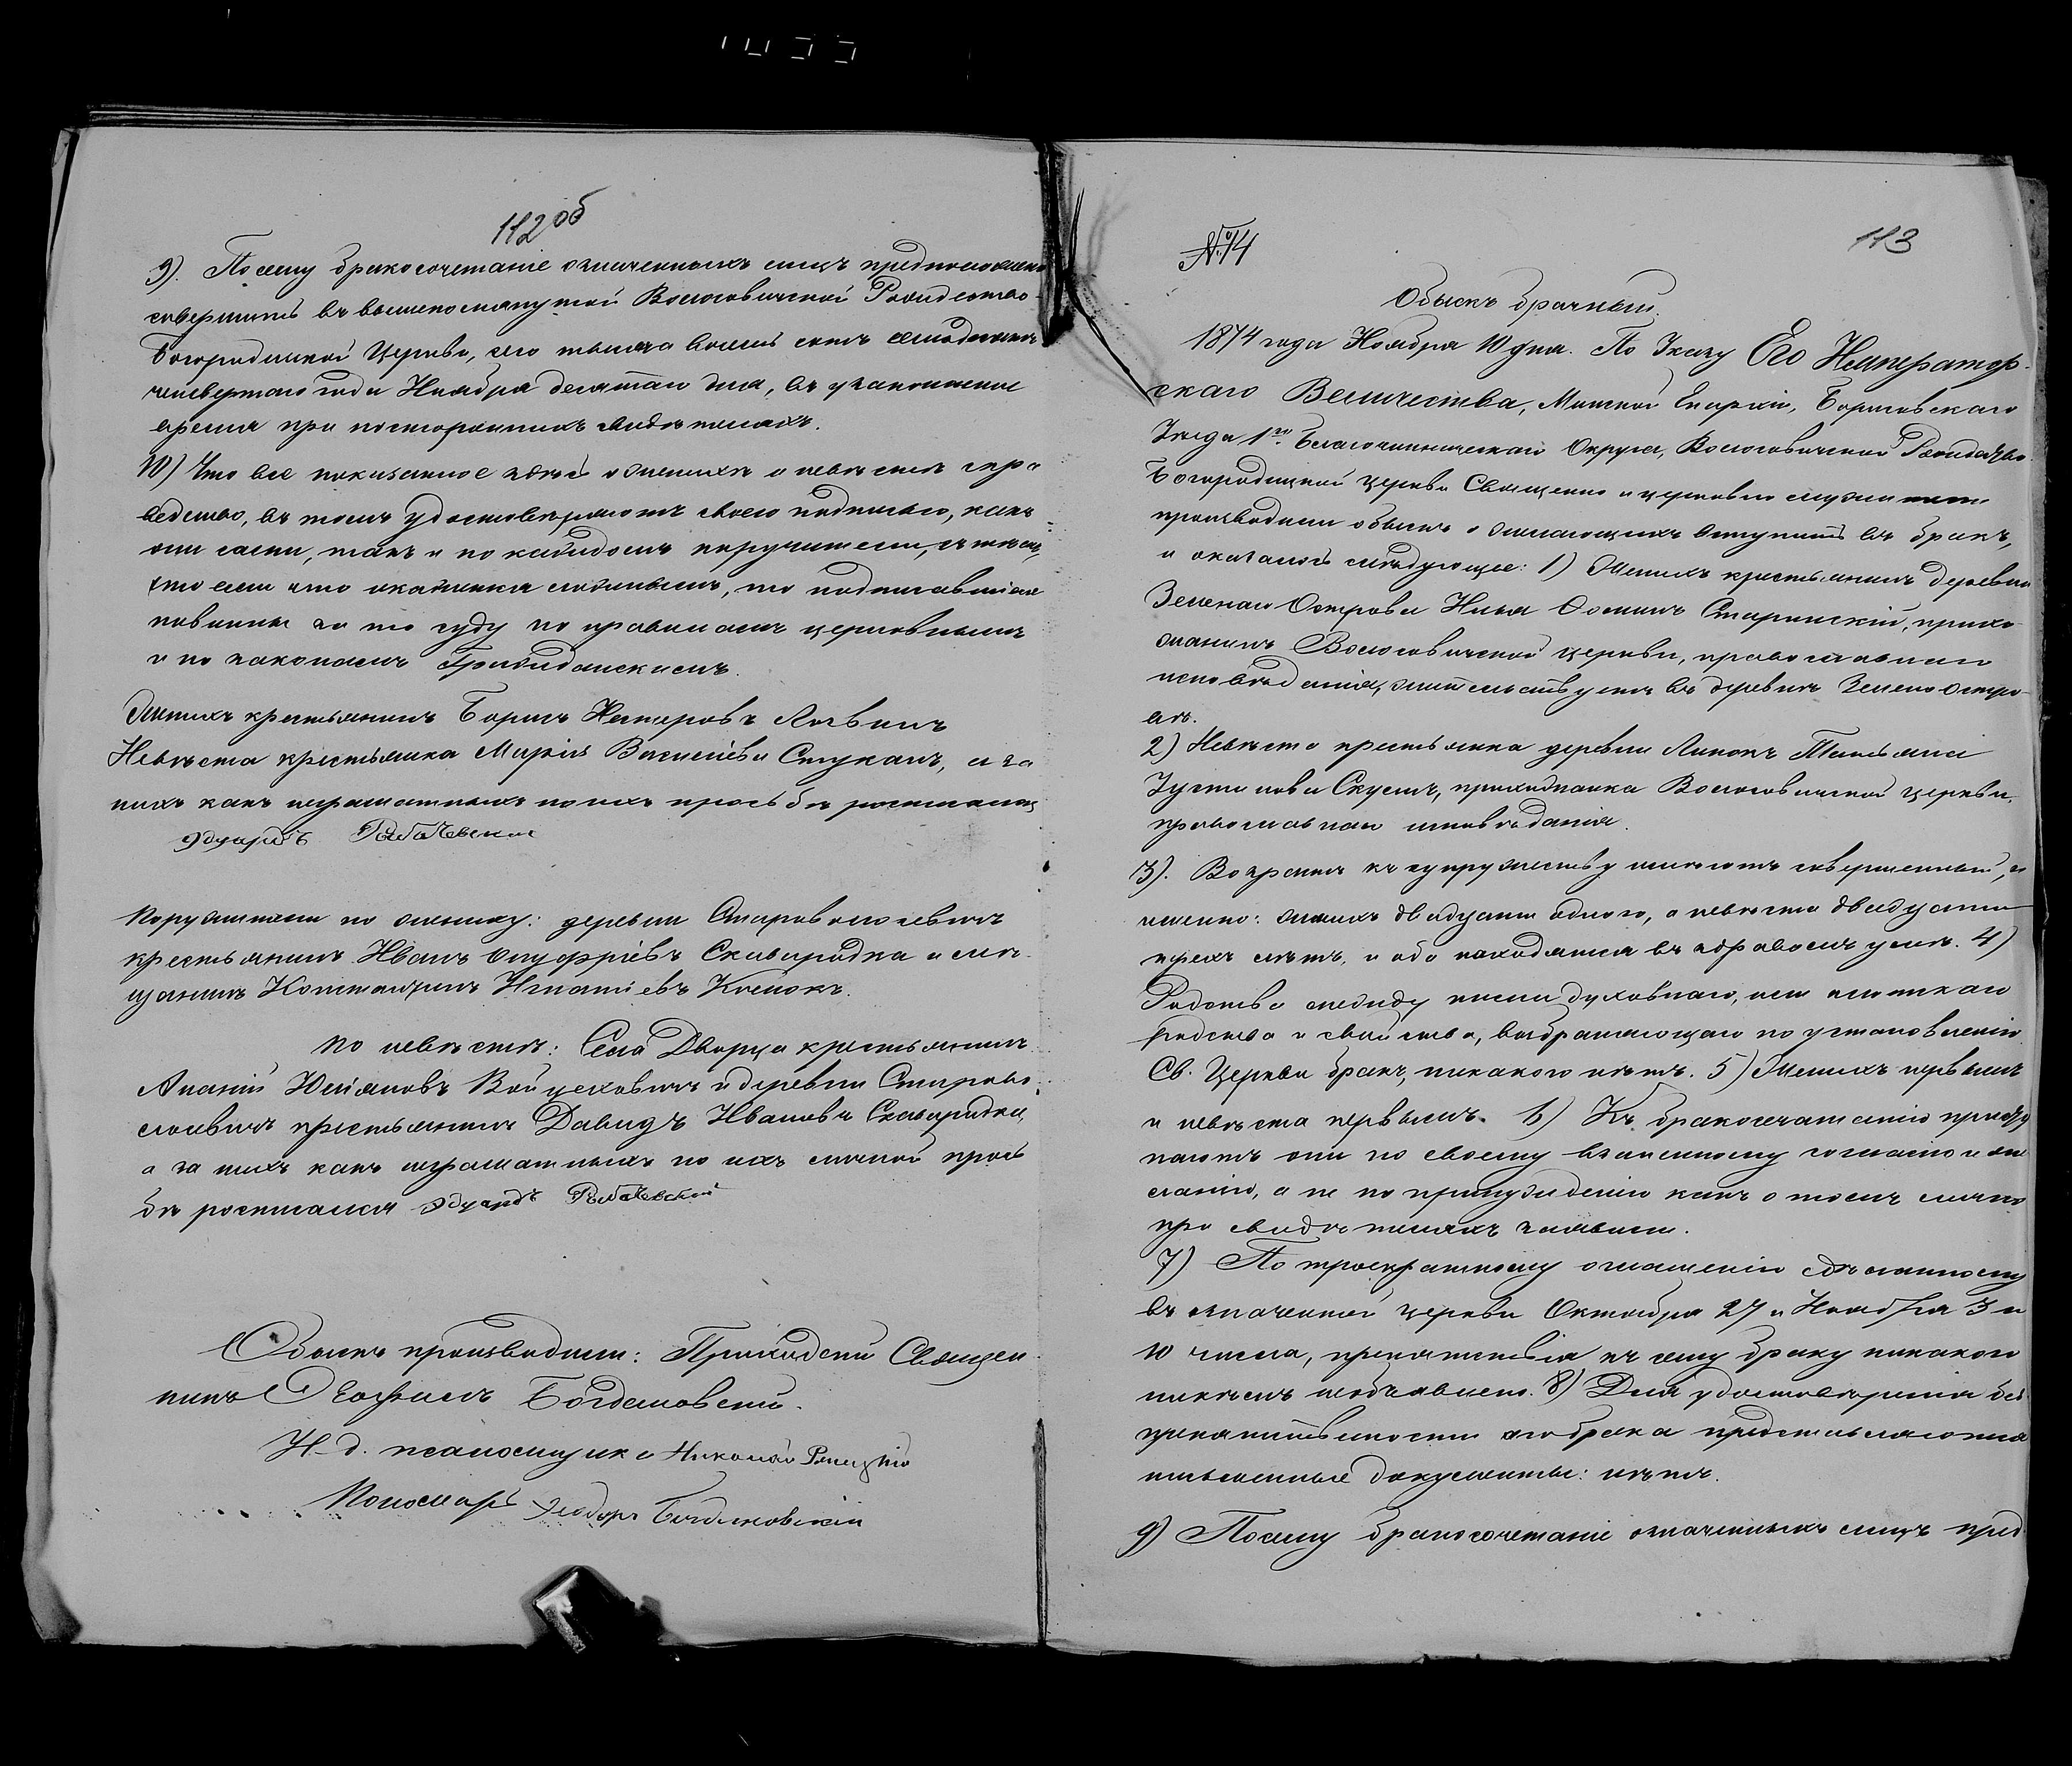 112 об
9). Посему бракосочетаніе означенныхъ лицъ предположено
совершить въ вышепомянутой Вологовичской Рождество-
Богородицкой Церкви, сего тысяча восемь сотъ семьдесятъ
четвертаго года Ноября десятаго дня, въ узаконенное
время при постороннихъ свидѣтеляхъ.
10) Что все показанное здѣсь о женихѣ и невѣстѣ спра
ведливо, въ томъ удостовѣряютъ своею подписью, какъ
они сами, такъ и по каждомъ поручители, съ тѣмъ,
что если что окажется ложнымъ, то подписавшіеся
повинны за то суду по правиламъ церковнымъ
и по законамъ Гражданскимъ.
Женихъ крестьянинъ Борисъ Несторовъ Логвинъ
Невѣста крестьянка Марія Василіева Стукачъ, а за
нихъ какъ неграматныхъ по ихъ просьбѣ росписался
Эдуардъ Рыбачевскій
Поручители по жениху: деревни Старовологевичъ
крестьянинъ Иванъ Онуфріевъ Сковородка и мѣ-
щанинъ Константинъ Игнатіевъ Клемокъ.
по невѣстѣ: Села Дворца крестьянинъ
Ананій Юліановъ Войцеховичъ и деревни Старово-
логевичъ крестьянинъ Давидъ Ивановъ Сковородка,
а за нихъ какъ неграматныхъ по ихъ личной прось
бѣ росписался Эдуардъ Рыбачевскій
Обыскъ производили: Приходскій Священ
никъ Богдановскій.
И. д. псаломщика Николай
Пономарь Ѳеодоръ
№ 14
113
Обыскъ брачный.
1874 года Ноября 10 дня. По Указу Его Император-
скаго Величества, Минской Епархіи, Борисовскаго
Уѣзда 1го Благочинническаго Округа, Вологовичской Рождество-
Богородицкой церкви Священно и церковно служители
производили обыскъ о желающихъ вступить въ бракъ,
и оказалось слѣдующее: 1) Женихъ крестьянинъ деревни
Зеленаго Острова Илья Ѳоминъ Старинскій, прихо-
жанинъ Вологовичской церкви, православнаго
исповѣданія, жительствуетъ въ деревнѣ Зелено Остро-
вѣ.
2) Невѣста крестьянка деревни Липокъ Татьяна
Устинова Скусъ, прихожанка Вологовичской церкви,
православнаго исповѣданія.
3). Возрастъ къ супружеству имѣютъ совершенный, а
именно: женихъ двадцати одного, а невѣста двадцати
трехъ лѣтъ, и оба находятся въ здравомъ умѣ. 4)
Родства между ними духовнаго, или плотскаго
родства и свойства, возбраняющаго по установленію
Св. Церкви бракъ, никакого нѣтъ. 5) Женихъ первымъ
и невѣста первымъ. 6) Къ бракосочетанію присту
паютъ они по своему взаимному согласію и же
ланію, а не по принужденію какъ о томъ лично
при свидѣтеляхъ заявили.
7) По троекратному оглашенію сдѣланному
въ означенной церкви Октября 27 и Ноября 3 и
10 числа, препятствія къ сему браку никакого
никѣмъ необъявлено. 8) Для удостовѣренія без
препятственности сего брака представляются
письменные документы: нѣтъ.
9) Посему бракосочетаніе означенныхъ лицъ пред